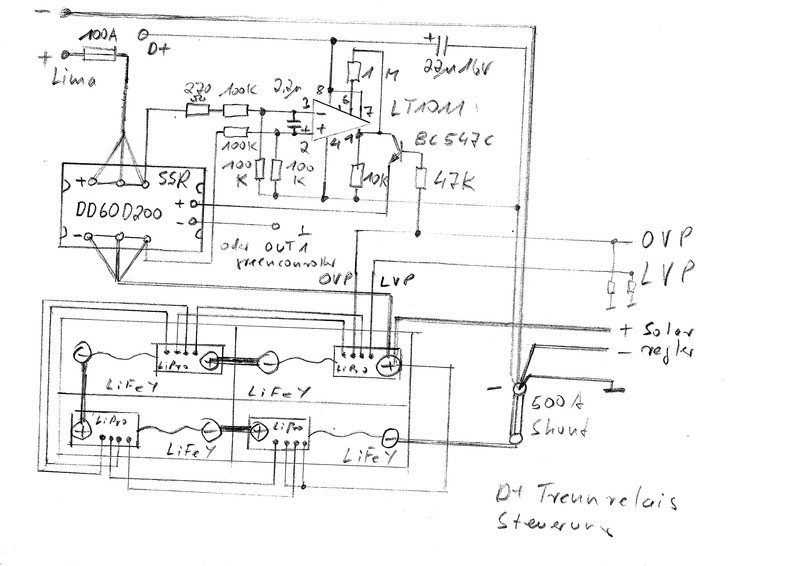 −
100A
D+
+
Lima
+ 22µ 16V
1 M
270 Ω
100K
2,2µ
8
3
−
6
7
LT1011
+
2
4
1
BC547C
100K
100 K
100 K
10K
47K
+ SSR
+
−
DD60D200
−
⊥
oder OUT1
greencontroller
OVP
LVP
OVP
LVP
+ Solar
− regler
LiPro
+
−
LiPro
+
−
LiFeY
LiFeY
−
500A
Shunt
+
LiPro
−
+
LiPro
−
LiFeY
LiFeY
D+ Trennrelais
Steuerung